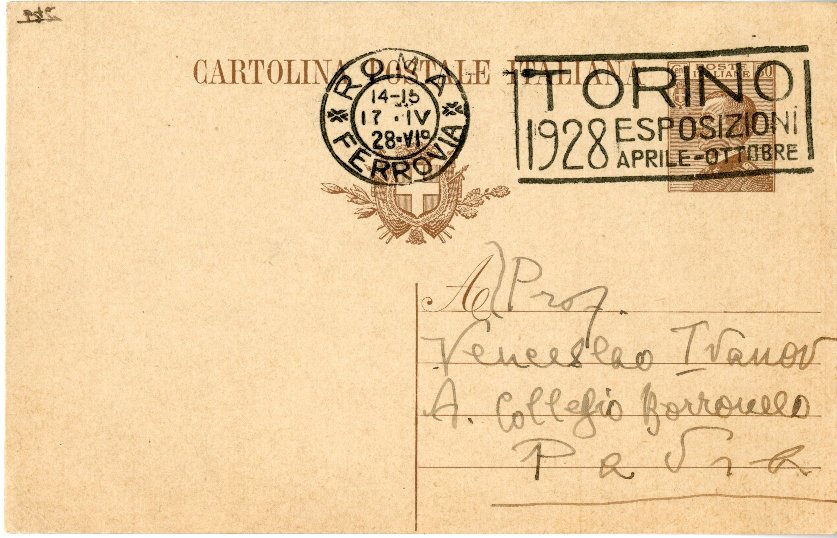 CARTOLINA POSTALE ITALIANA
ROMA
14-15
17·IV
28·VIº
FERROVIA
TORINO
1928 ESPOSIZIONI
APRILE-OTTOBRE
POSTE
ITALIANE 30
A Prof.
Venceslao Ivanov
A. Collegio Borromeo
Pavia